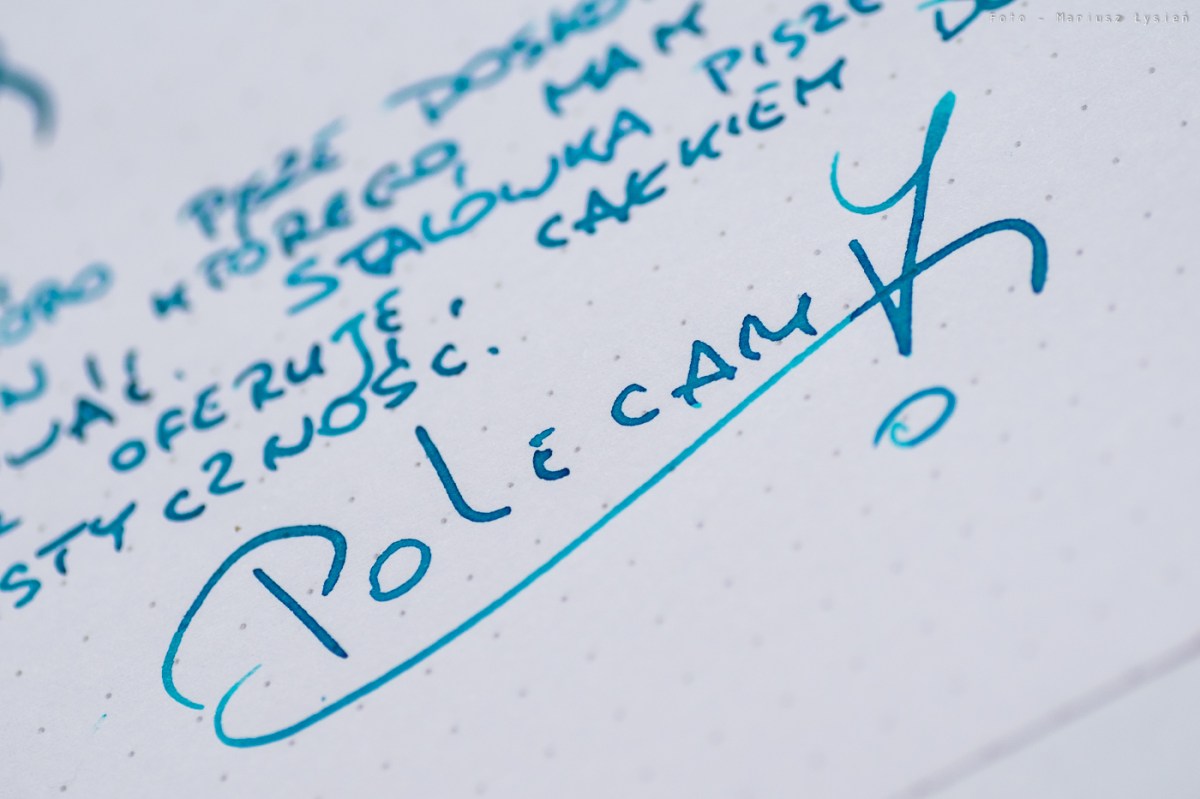 Foto - Mariusz Łysień
ÓRO PISZE DOSKO
KTÓREGO, MAM
WAĆ. STALÓWKA PISZE
OFERUJE CAŁKIEM DO
STYCZNOŚĆ.
POLECAM!